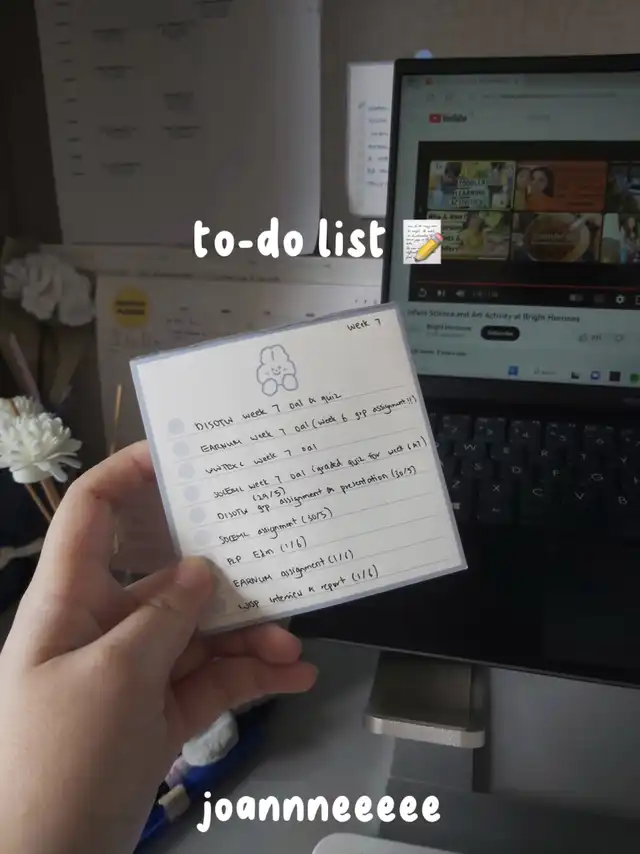 to-do list
week 7
DISOTW week 7 oal & quiz
EARNUM week 7 oal (week 6 grp assignment!!)
week 7 oal
SOCEML week 7 oal (graded quiz for week 6 &7)
(29/5)
DISOTW grp assignment & presentation (30/5)
SOCEML assignment (30/5)
PLP Edm (1/6)
EARNUM assignment (1/6)
interview & report (1/6)
YouTube
TODDLER
LEARNING
ACTIVITIES
Infant Science and Art Activity at Bright Horizons
Bright Horizons
Subscribe
joannneeeee